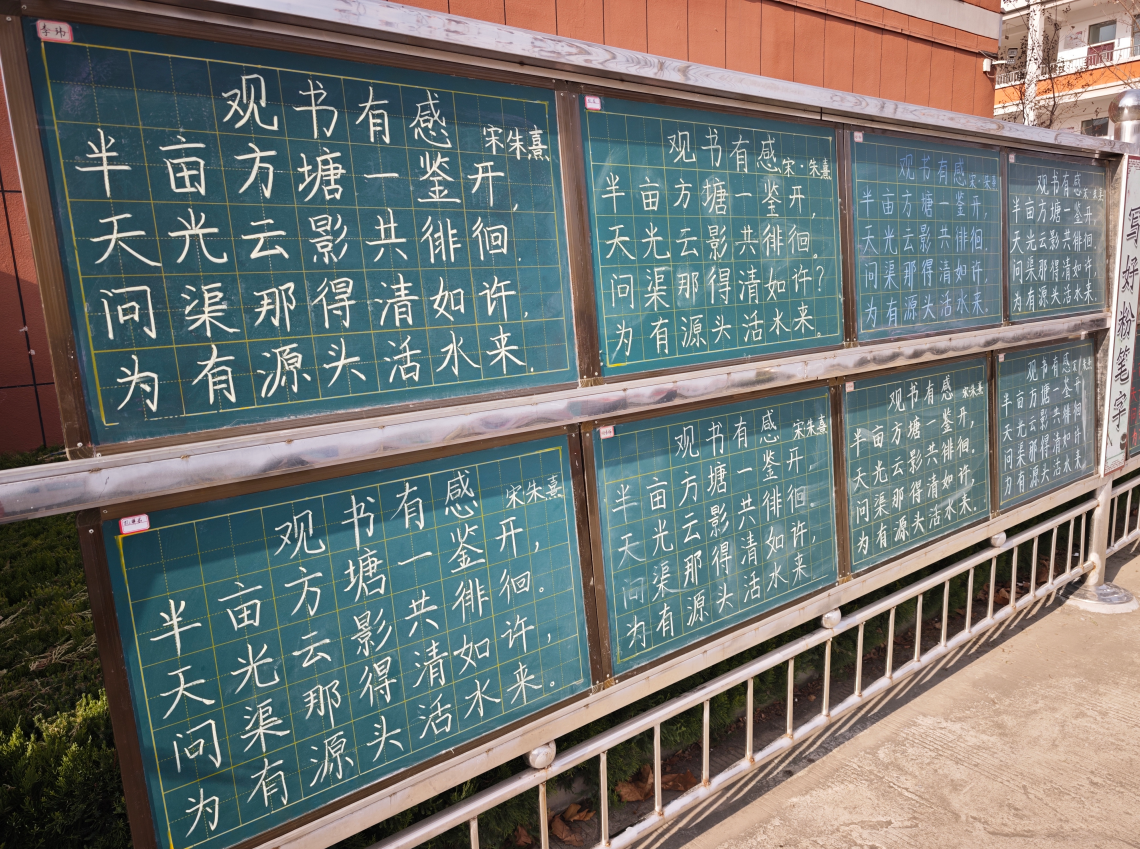 李玮
观书有感 宋朱熹
半亩方塘一鉴开,
天光云影共徘徊.
问渠那得清如许,
为有源头活水来.
观书有感 宋·朱熹
半亩方塘一鉴开,
天光云影共徘徊.
问渠那得清如许?
为有源头活水来.
观书有感 宋·朱熹
半亩方塘一鉴开,
天光云影共徘徊.
问渠那得清如许,
为有源头活水来.
观书有感 宋 朱熹
半亩方塘一鉴开,
天光云影共徘徊.
问渠那得清如许,
为有源头活水来.
观书有感 宋朱熹
半亩方塘一鉴开,
天光云影共徘徊。
问渠那得清如许,
为有源头活水来。
观书有感 宋朱熹
半亩方塘一鉴开,
天光云影共徘徊.
问渠那得清如许,
为有源头活水来.
观书有感 宋朱熹
半亩方塘一鉴开,
天光云影共徘徊.
问渠那得清如许,
为有源头活水来.
观书有感 宋朱熹
半亩方塘一鉴开
天光云影共徘徊
问渠那得清如许
为有源头活水来.
写好粉笔字